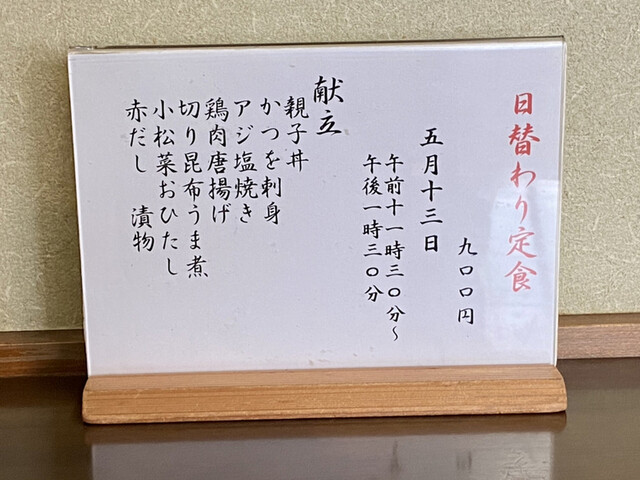 日替わり定食
九〇〇円
五月十三日
午前十一時三〇分～
午後一時三〇分
献立
親子丼
かつを刺身
アジ塩焼き
鶏肉唐揚げ
切り昆布うま煮
小松菜おひたし
赤だし 漬物